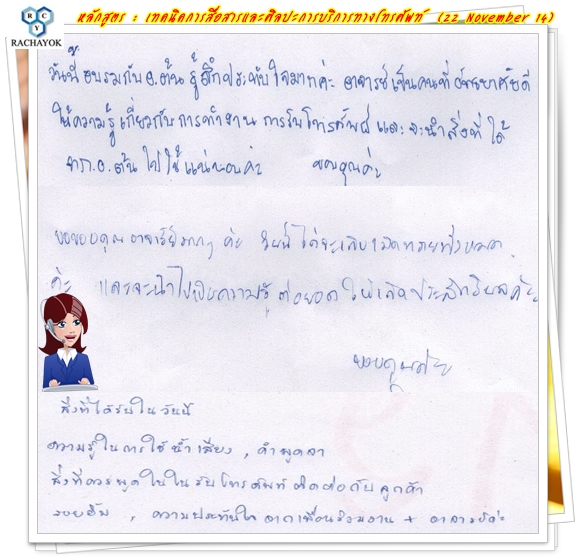 หลักสูตร : เทคนิคการสื่อสารและศิลปะการบริการทางโทรศัพท์ (22 November 14)
RCY
RACHAYOK
วันนี้อบรมกับอ.ต้น รู้สึกประทับใจมากค่ะ อาจารย์เป็นคนที่อัธยาศัยดี
ให้ความรู้เกี่ยวกับการทำงาน การรับโทรศัพท์ และจะนำสิ่งที่ได้
จาก อ.ต้น ไปใช้แน่นอนค่ะ ขอบคุณค่ะ
ขอขอบคุณ อาจารย์มากๆ ค่ะ วันนี้ได้
ค่ะ และจะนำไปเป็นความรู้ ต่อยอด ให้เกิดประสิทธิผลค่ะ
ขอบคุณค่ะ
สิ่งที่ได้รับใน วันนี้
ความรู้ในการใช้น้ำเสียง , คำพูดลา
สิ่งที่ควรพูดในรับโทรศัพท์ ติดต่อกับลูกค้า
รอยยิ้ม , ความประทับใจ จากเพื่อนร่วมงาน + อาจารย์ค่ะ